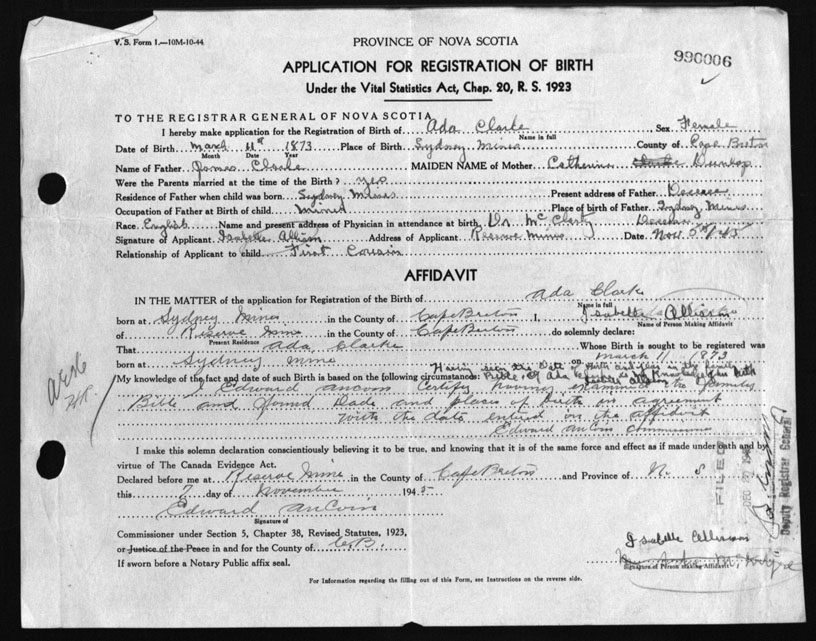 V. S. Form 1.—10M-10-44
PROVINCE OF NOVA SCOTIA
990006
APPLICATION FOR REGISTRATION OF BIRTH
Under the Vital Statistics Act, Chap. 20, R. S. 1923
TO THE REGISTRAR GENERAL OF NOVA SCOTIA
I hereby make application for the Registration of Birth of Ada Clarke Sex Female
Name in full
Date of Birth March 11th 1873 Place of Birth Sydney Mines County of Cape Breton
Month Date Year
Name of Father James Clarke MAIDEN NAME of Mother Catherine Clarke Dunlop
Were the Parents married at the time of the Birth? yes
Residence of Father when child was born Sydney Mines Present address of Father Deceased
Occupation of Father at Birth of child Place of birth of Father Sydney Mines
Race English Name and present address of Physician in attendance at birth Dr. McClarty
Signature of Applicant Isabelle Allison Address of Applicant Reserve Mines Date Nov 5th/45
Relationship of Applicant to child First Cousin
AFFIDAVIT
IN THE MATTER of the application for Registration of the Birth of Ada Clarke
Name in full
born at Sydney Mines in the County of Cape Breton I, Isabelle Allison
Name of Person Making Affidavit
of Reserve Mines in the County of Cape Breton do solemnly declare:
Present Residence
That Ada Clarke Whose Birth is sought to be registered was
born at Sydney Mines on March 11 1873
My knowledge of the fact and date of such Birth is based on the following circumstances: Having seen the Date of Birth and place in the family
Bible of Ada
I Edward certify having examined the family
Bible and found Date and place of birth in agreement
with the date entered on the affidavit
Edward Commissioner
I make this solemn declaration conscientiously believing it to be true, and knowing that it is of the same force and effect as if made under oath and by
virtue of The Canada Evidence Act.
Declared before me at Reserve Mines in the County of Cape Breton and Province of N. S
this 7 day of November 1945
Edward
Signature of
Commissioner under Section 5, Chapter 38, Revised Statutes, 1923,
or Justice of the Peace in and for the County of C.B.
If sworn before a Notary Public affix seal.
Isabelle Allison
Signature of Person Making Affidavit
For Information regarding the filling out of this Form, see Instructions on the reverse side.
FILED
DEC 27 1945
Deputy Registrar General